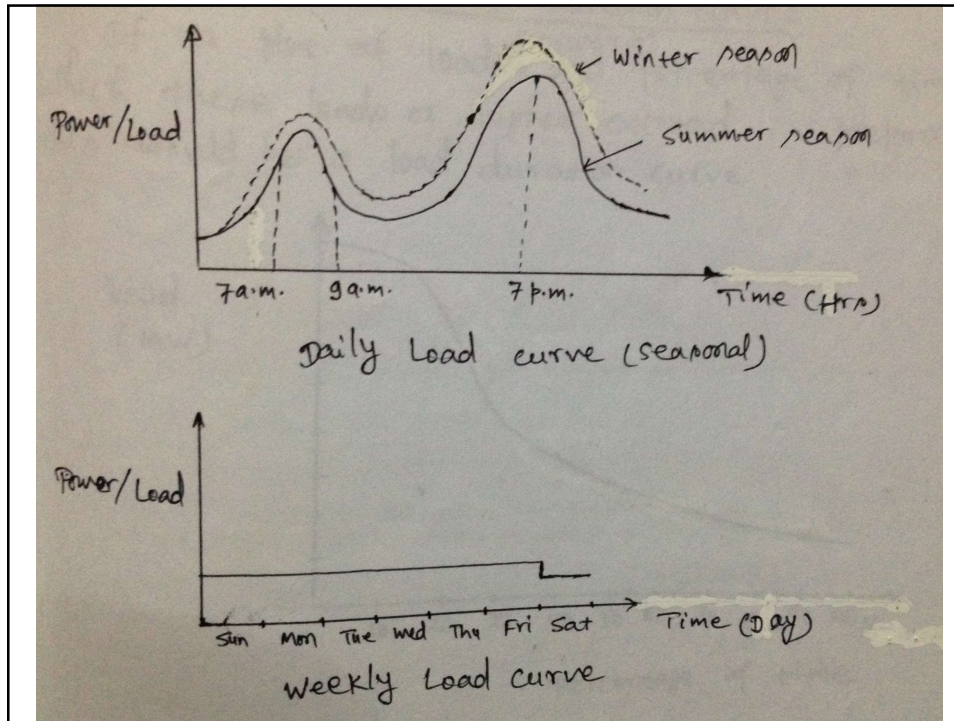 Winter season
Power/Load
Summer season
7a.m. 9a.m. 7p.m. Time (Hrs)
Daily Load curve (seasonal)
Power/Load
Sun Mon Tue Wed Thu Fri Sat Time (Day)
Weekly Load curve